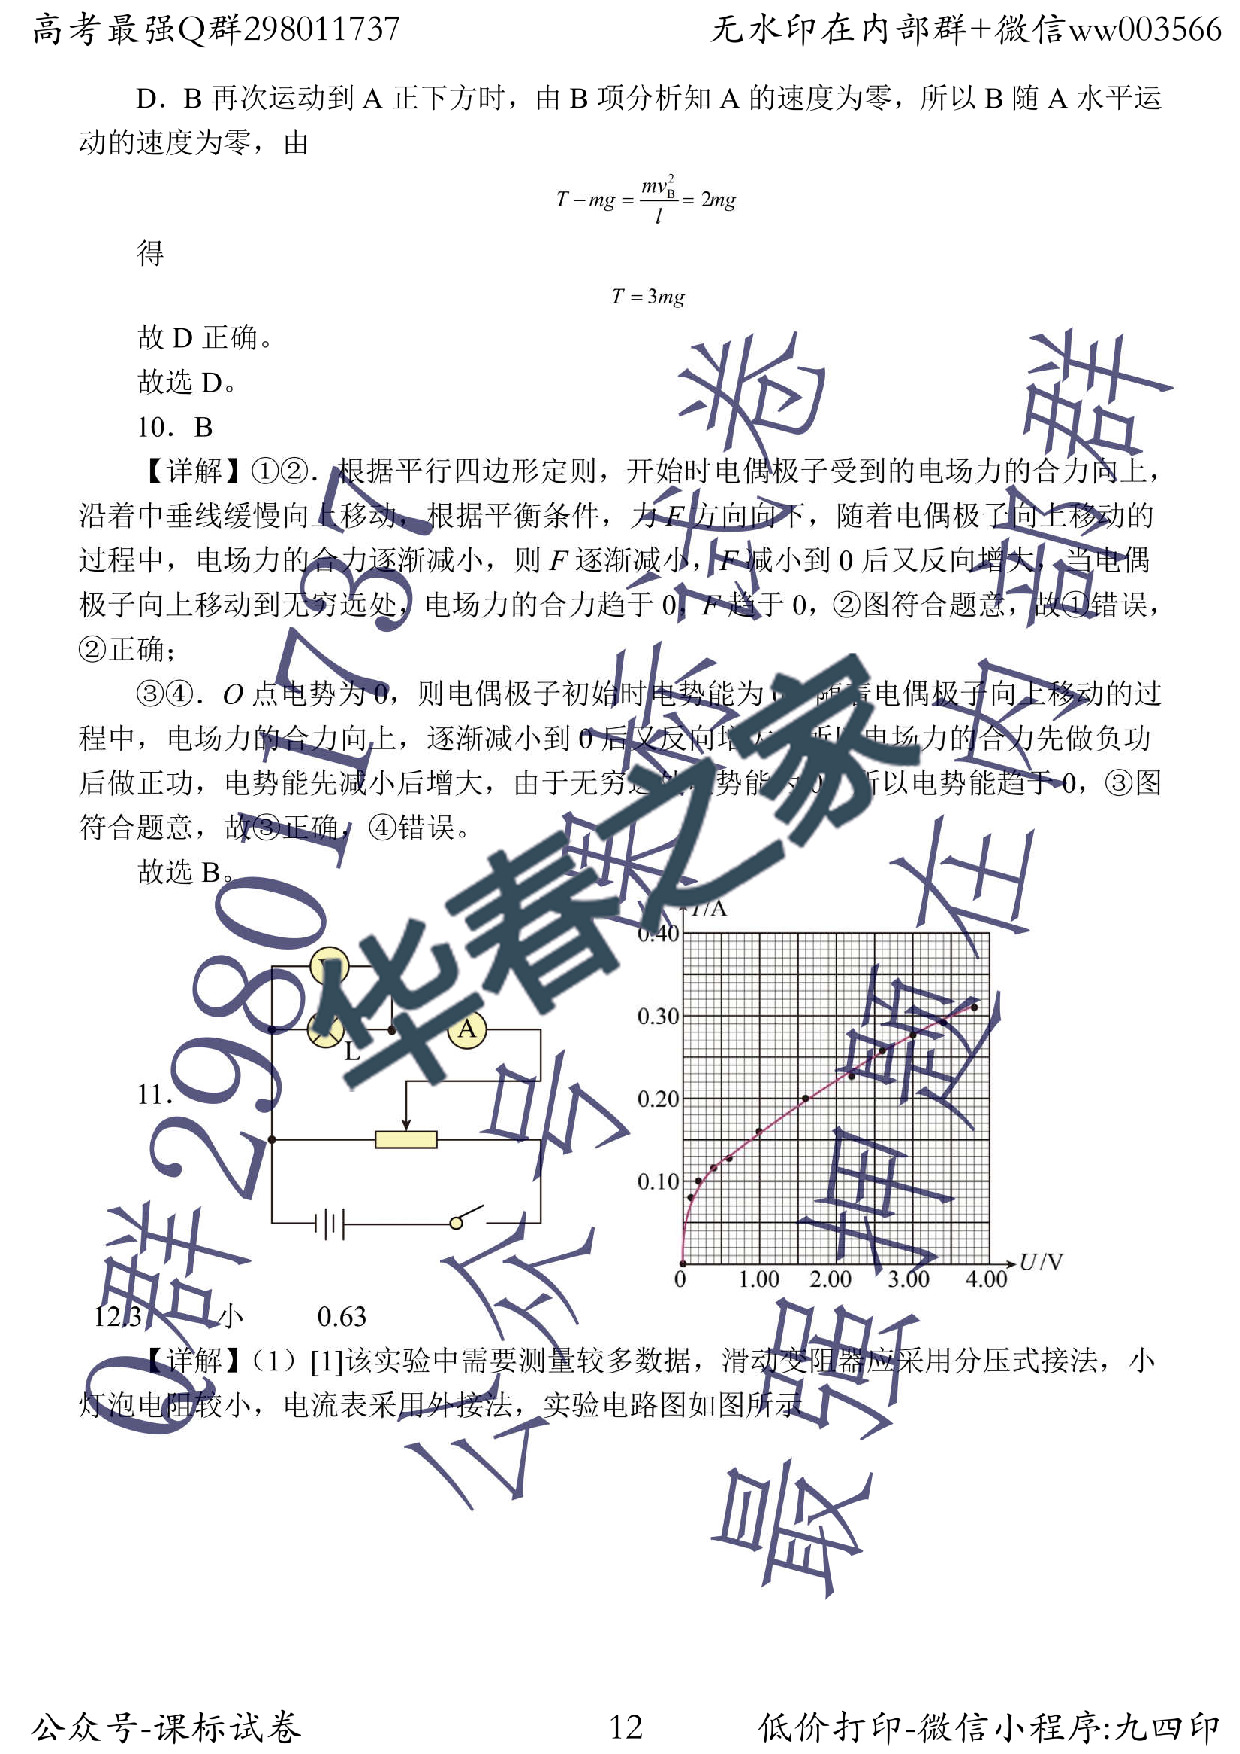 高考最强Q群298011737
无水印在内部群+微信ww003566
D．B 再次运动到 A 正下方时，由 B 项分析知 A 的速度为零，所以 B 随 A 水平运
动的速度为零，由
T − mg = mv_B^2 / l = 2mg
得
T = 3mg
故 D 正确。
故选 D。
10．B
【详解】①②．根据平行四边形定则，开始时电偶极子受到的电场力的合力向上，
沿着中垂线缓慢向上移动，根据平衡条件，力 F 方向向下，随着电偶极子向上移动的
过程中，电场力的合力逐渐减小，则 F 逐渐减小，F 减小到 0 后又反向增大，当电偶
极子向上移动到无穷远处，电场力的合力趋于 0，F 趋于 0，②图符合题意，故①错误，
②正确；
③④．O 点电势为 0，则电偶极子初始时电势能为 0，随着电偶极子向上移动的过
程中，电场力的合力向上，逐渐减小到 0 后又反向增大，所以电场力的合力先做负功
后做正功，电势能先减小后增大，由于无穷远处电势能为 0，所以电势能趋于 0，③图
符合题意，故③正确，④错误。
故选 B。
11．
L
A
I/A
0.40
0.30
0.20
0.10
0 1.00 2.00 3.00 4.00
U/V
12.3 小 0.63
【详解】（1）[1]该实验中需要测量较多数据，滑动变阻器应采用分压式接法，小
灯泡电阻较小，电流表采用外接法，实验电路图如图所示
Q群298011737
公众号 课标试卷
最强押题在内部群
华春之家
公众号-课标试卷
12
低价打印-微信小程序:九四印